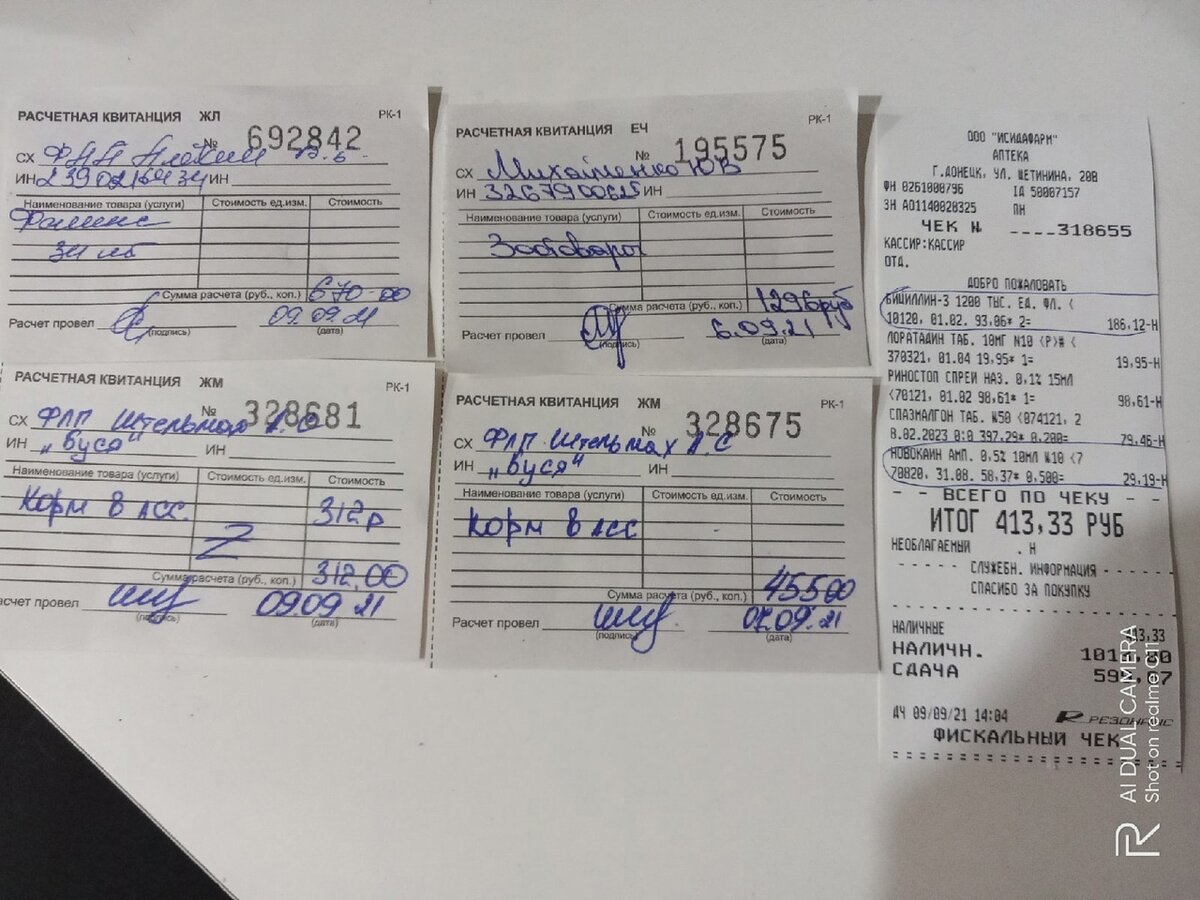 РАСЧЕТНАЯ КВИТАНЦИЯ ЖЛ РК-1
№ 692842
СХ ФЛП
ИН ИН
Наименование товара (услуги) Стоимость ед.изм. Стоимость
Сумма расчета (руб., коп.) 670-00
Расчет провел 09.09.21
(подпись) (дата)
РАСЧЕТНАЯ КВИТАНЦИЯ ЕЧ РК-1
№ 195575
СХ Михайленко ЮВ
ИН 3267900625 ИН
Наименование товара (услуги) Стоимость ед.изм. Стоимость
Зоотовары
Сумма расчета (руб., коп.) 1296руб
Расчет провел 6.09.21
(подпись) (дата)
РАСЧЕТНАЯ КВИТАНЦИЯ ЖМ РК-1
№ 328681
СХ ФЛП Штельмах А.С
ИН "Буся" ИН
Наименование товара (услуги) Стоимость ед.изм. Стоимость
Корм в асс. 312р
Z
Сумма расчета (руб., коп.) 312.00
асчет провел 09.09.21
(подпись) (дата)
РАСЧЕТНАЯ КВИТАНЦИЯ ЖМ РК-1
№ 328675
СХ ФЛП Штельмах А.С
ИН "Буся" ИН
Наименование товара (услуги) Стоимость ед.изм. Стоимость
Корм в асс
Сумма расчета (руб., коп.) 45500
Расчет провел 07.09.21
(подпись) (дата)
ООО "ИСИДАФАРМ"
АПТЕКА
Г.ДОНЕЦК, УЛ. ЩЕТИНИНА, 20В
ФН 0261000796 ІД 50007157
ЗН АО1140020325 ПН
ЧЕК № ....318655
КАССИР:КАССИР
ОТД.
ДОБРО ПОЖАЛОВАТЬ
БИЦИЛЛИН-3 1200 ТЫС. ЕД. ФЛ. (
10120, 01.02. 93,06* 2= 186,12-Н
ЛОРАТАДИН ТАБ. 10МГ N10 (Р)# (
370321, 01.04 19,95* 1= 19,95-Н
РИНОСТОП СПРЕЙ НАЗ. 0,1% 15МЛ
(70121, 01.02 98,61* 1= 98,61-Н
СПАЗМАЛГОН ТАБ. N50 (074121, 2
8.02.2023 0:0 397,29* 0,200= 79,46-Н
НОВОКАИН АМП. 0,5% 10МЛ N10 (7
70820, 31.08. 58,37* 0,500= 29,19-Н
- - ВСЕГО ПО ЧЕКУ - -
ИТОГ 413,33 РУБ
НЕОБЛАГАЕМЫЙ . Н
- - - - - - СЛУЖЕБН. ИНФОРМАЦИЯ - - - - - -
СПАСИБО ЗА ПОКУПКУ
НАЛИЧНЫЕ 413,33
НАЛИЧН.
СДАЧА
ДЧ 09/09/21 14:04 РЕЗОНАНС
ФИСКАЛЬНЫЙ ЧЕК
AI DUAL CAMERA
Shot on realme C11